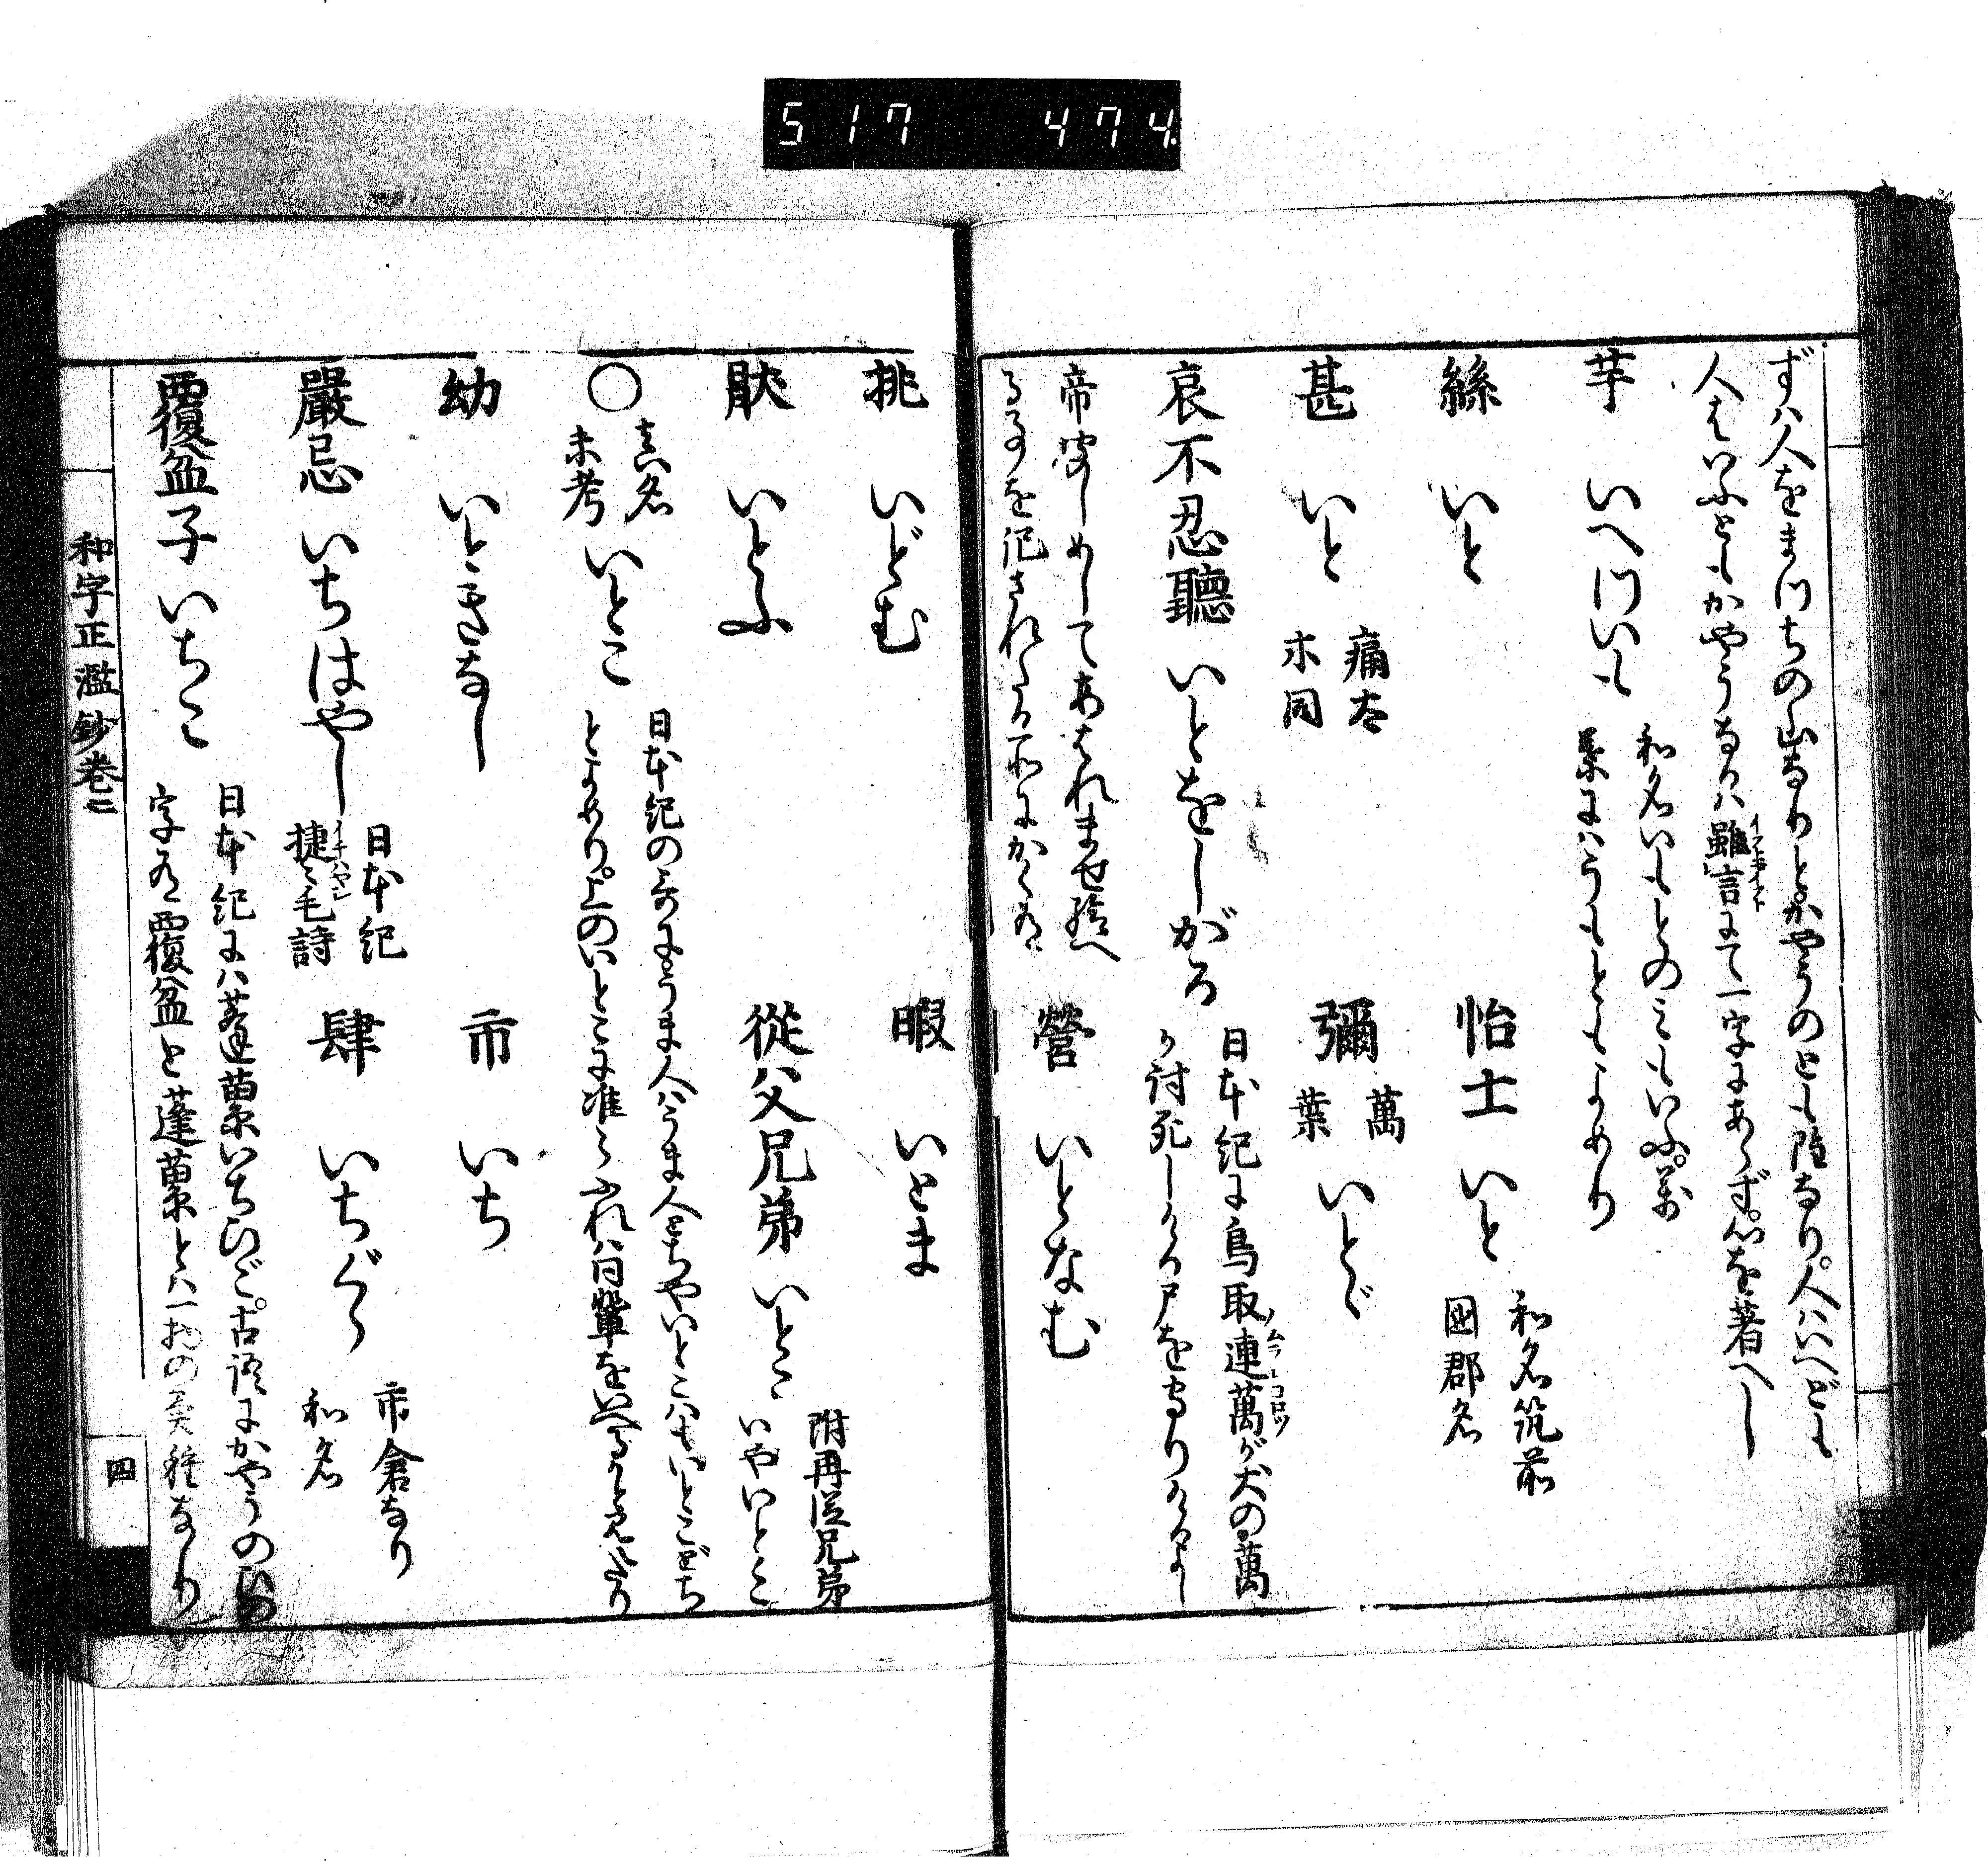 517 474
ずハ人をま川ちの山なりとかやうのとも陸なり。人ハいへども
人はいふともかやうなるハ雖言にて一字にあらず。心を著へし
芋 いへ川いも 和名いもとのミもいふ。万
葉にハうもとともよめり
絲 いと 怡土 いと 和名筑前
国郡名
甚 いと 痛太
木同 彌 萬
葉 いとゞ
哀不忍聽 いとをしがる 日本紀に鳥取連萬が犬の萬
か討死しける尸を守りけるよし
帝聞しめしてあはれませ給へ
る事を記されたる所にかくあり 營 いとなむ
挑 いどむ 暇 いとま
猒 いとふ 從父兄弟 いとこ 附再從兄弟
いやいとこ
〇 真名
未考 いとこ 日本紀の哥にうま人ハうま人どちやいとこハもいとこどち
とよめり。上のいとこに准らふれハ同輩をいへると見えたり
幼 いときなし 市 いち
嚴忌 いちはやし 日本紀
捷ミ毛詩 肆 いちぐら 市倉なり
和名
覆盆子 いちこ 日本紀にハ蓬蘽いちひご。古語にかやうの
字有 覆盆と蓬蘽とハ一物の異種なり
和字正濫鈔卷二
四